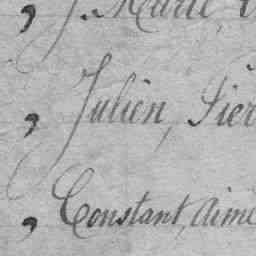 , J. Marie
, Julien, Pier
, Constant, Aimé